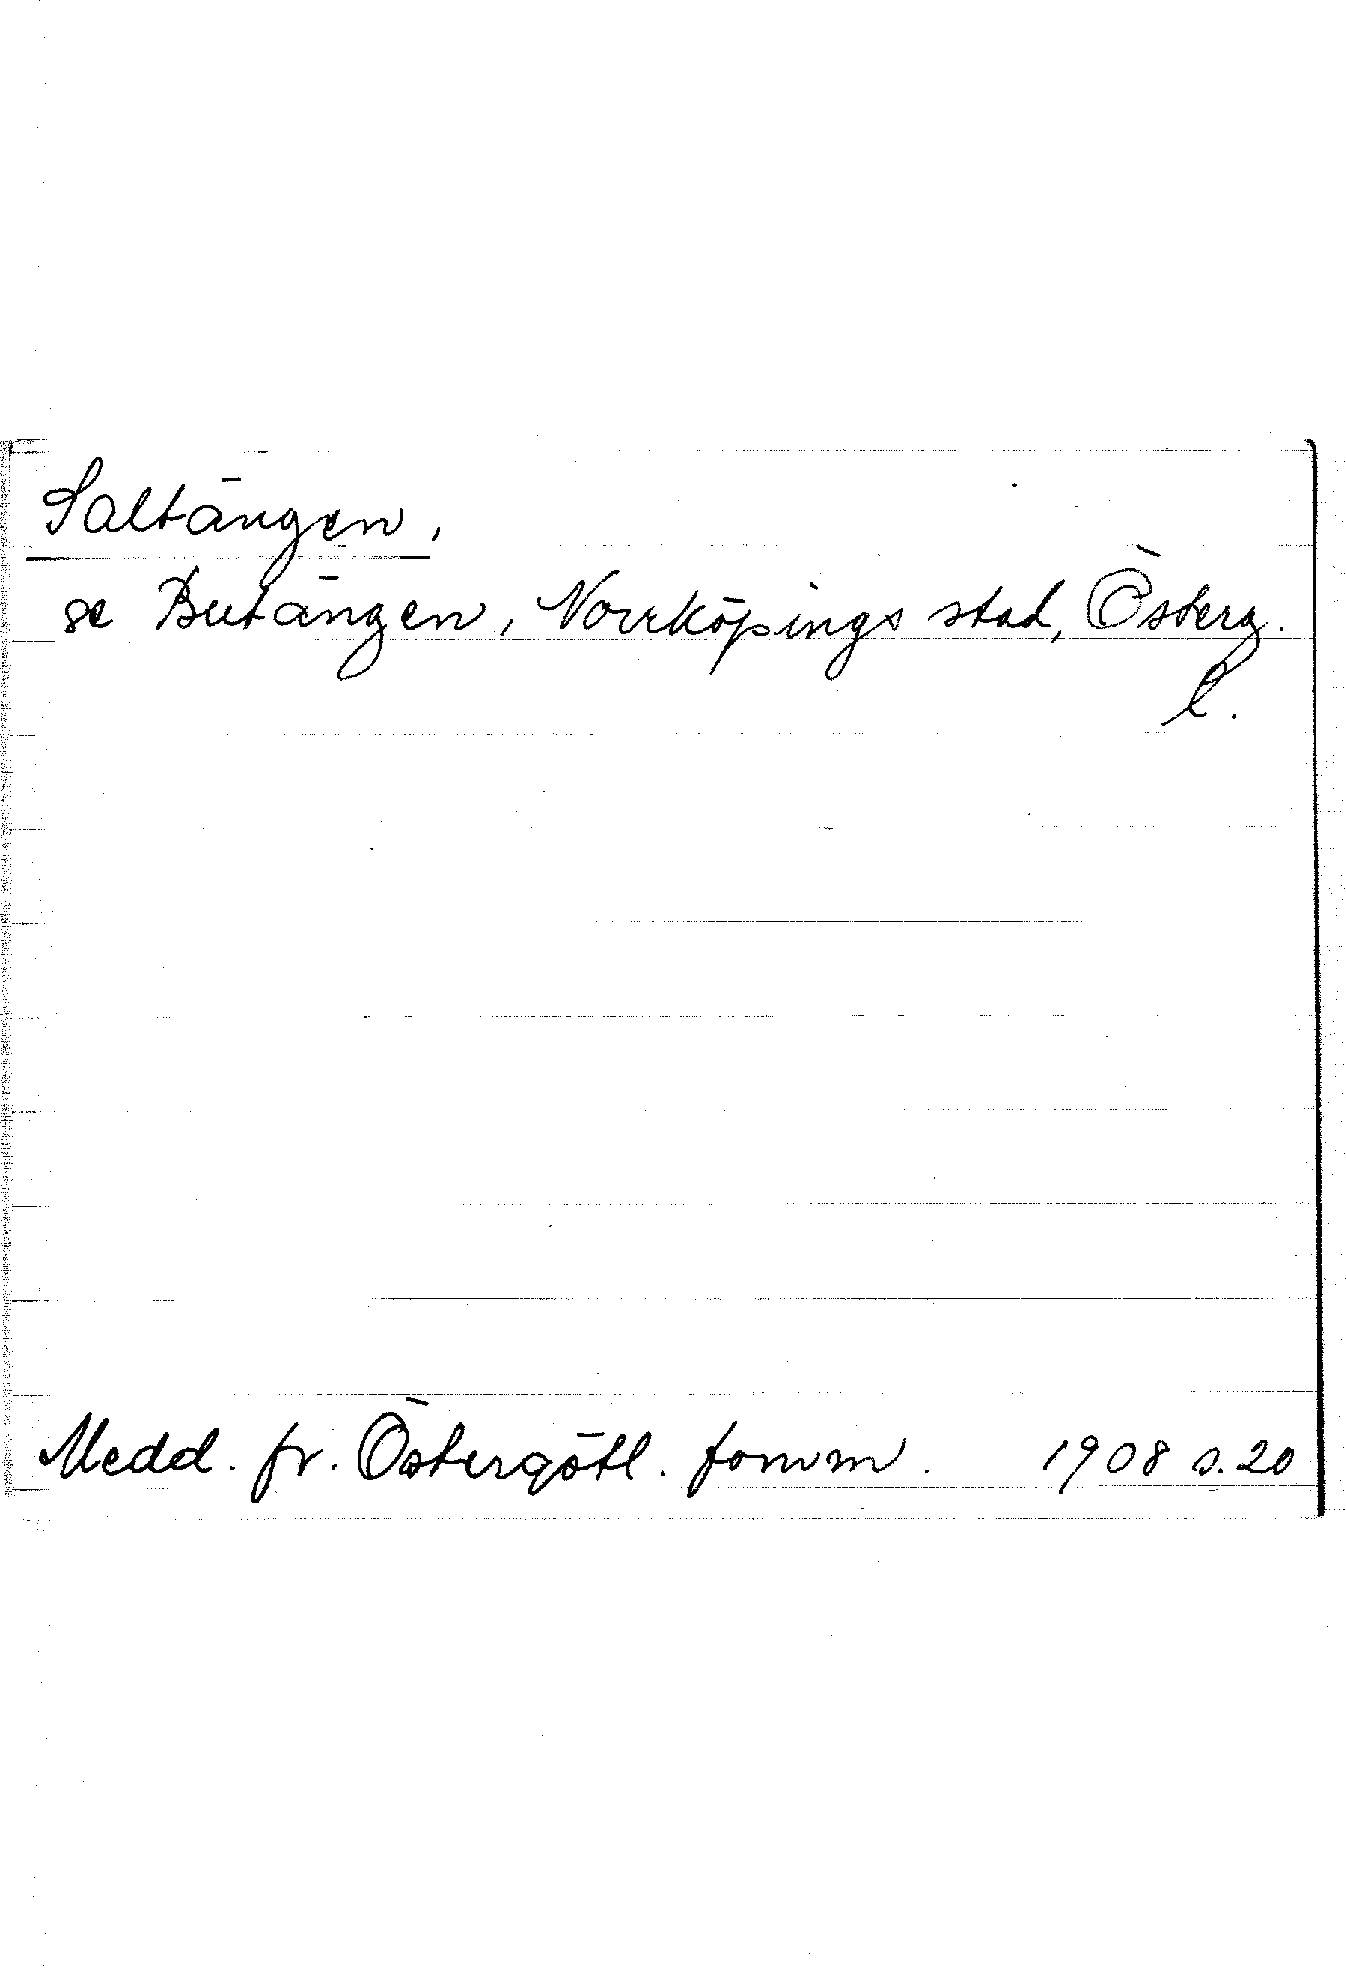 Saltängen,
se Butängen, Norrköpings stad, Österg.
l.
Medd. fr. Östergötl. fornm. 1908 s. 20